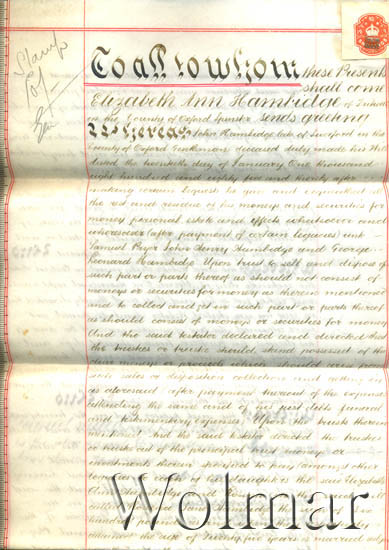 Stamp
To all to whom these Presents
shall come
Elizabeth Ann Hambidge of
in the County of Oxford Spinster sends greeting
Whereas John Hambidge late of Swiford in the
County of Oxford Gentleman deceased duly made his Will
dated the twentieth day of January One thousand
eight hundred and eighty five and thereby after
making certain bequests he gave and bequeathed all
the rest and residue of his moneys and securities for
money personal estate and effects whatsoever and
wheresoever (after payment of certain legacies) unto
Samuel Pryer John Henry Hambidge and George
Leonard Hambidge Upon trust to sell and dispose of
such part or parts thereof as should not consist of
moneys or securities for money as therein mentioned
and to collect and get in such part or parts thereof
as should consist of moneys or securities for money
And the said testator declared and directed that
the trustees or trustee should stand possessed of the
clear moneys or proceeds which should arise from
such sales or disposition collection and getting in
as aforesaid after payment thereout of the expenses
attending the same and of his just debts funeral
and testamentary expenses Upon the trusts therein
mentioned And the said testator directed the trustees
or trustee out of the principal trust moneys or
investments thereon to pay amongst other
to each of his daughters the said Elizabeth
Ann Hambidge
Hambidge the sum of five
hundred
attained the age of Twenty five years or married
Wolmar